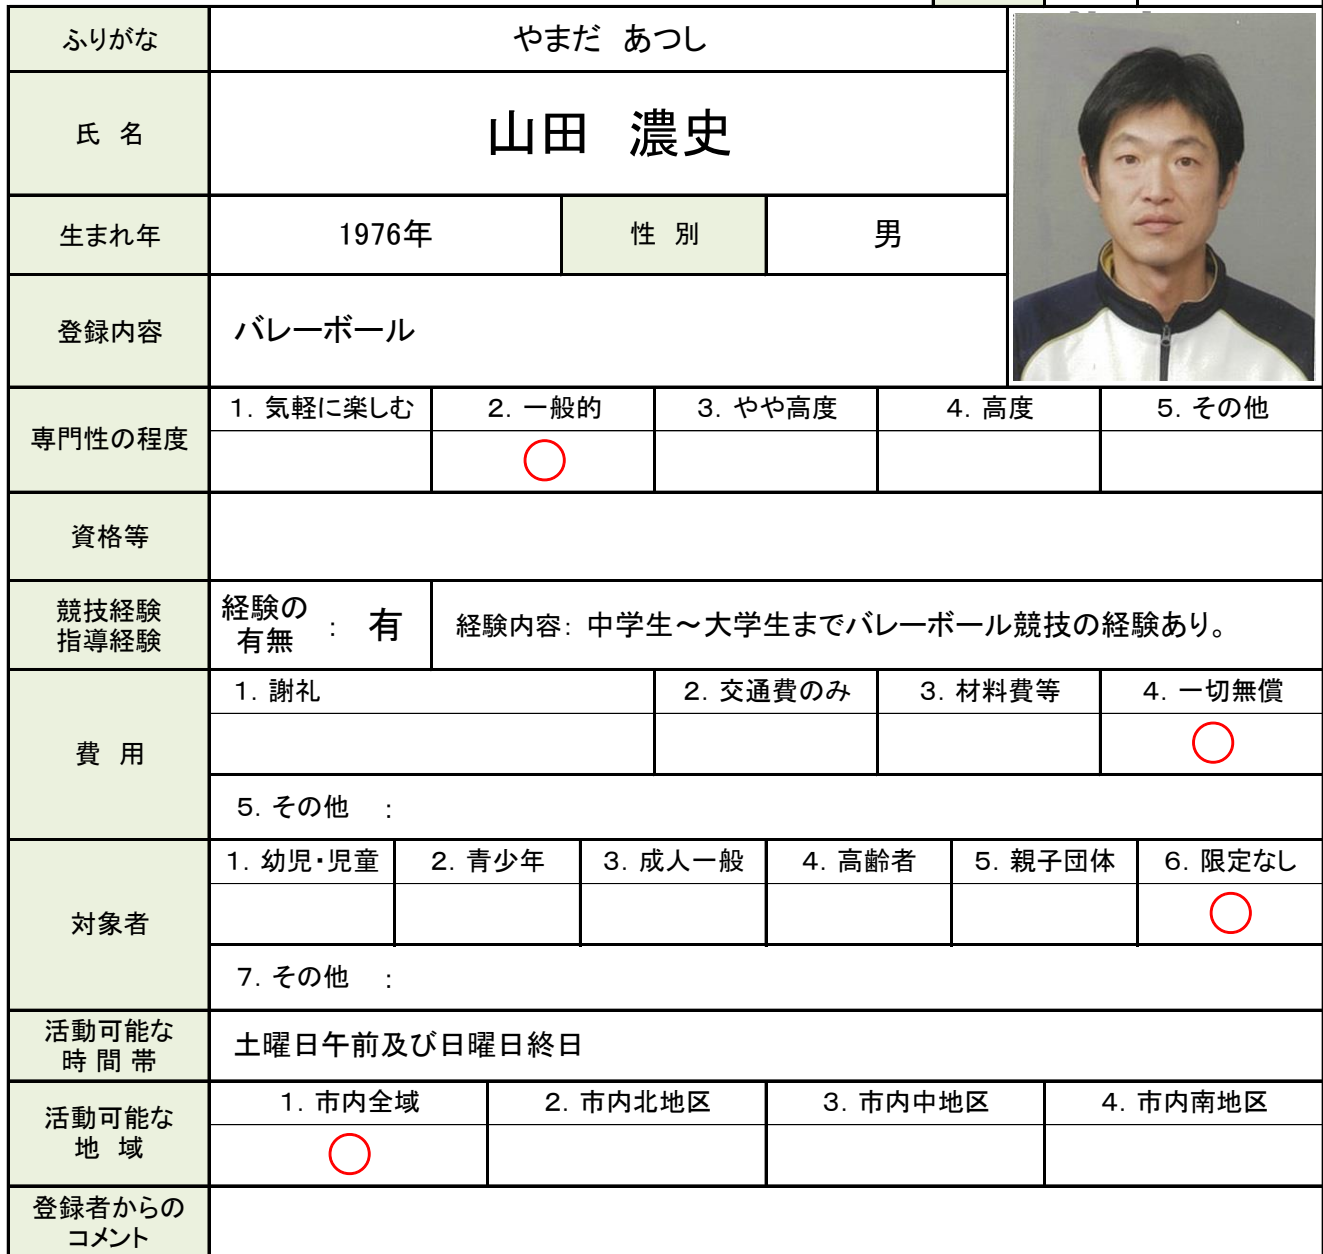 ふりがな
やまだ あつし
氏 名
山田 濃史
生まれ年
1976年
性 別
男
登録内容
バレーボール
専門性の程度
1. 気軽に楽しむ
2. 一般的
3. やや高度
4. 高度
5. その他
○
資格等
競技経験
指導経験
経験の
有無
:
有
経験内容: 中学生～大学生までバレーボール競技の経験あり。
費 用
1. 謝礼
2. 交通費のみ
3. 材料費等
4. 一切無償
○
5. その他 :
対象者
1. 幼児・児童
2. 青少年
3. 成人一般
4. 高齢者
5. 親子団体
6. 限定なし
○
7. その他 :
活動可能な
時 間 帯
土曜日午前及び日曜日終日
活動可能な
地 域
1. 市内全域
2. 市内北地区
3. 市内中地区
4. 市内南地区
○
登録者からの
コメント